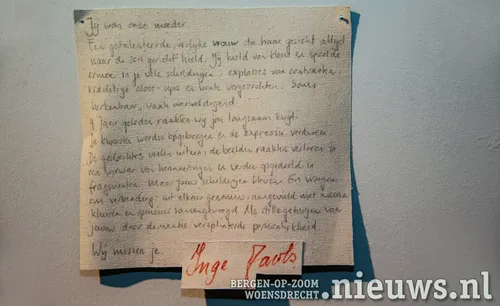 Jij was onze moeder.
Een getalenteerde, vrolijke vrouw die haar gezicht altijd
naar de zon gericht hield. Jij hield van kleur en speelde
ermee in je vele schilderingen, explosies van contrasten,
krachtige close-ups en weidse vergezichten. Soms
herkenbaar, vaak overweldigend.
9 Jaar geleden raakten wij jou langzaam kwijt.
Je kwasten werden opgeborgen en de expressie verdween.
De gedachtes vielen uiteen, de beelden raakten verloren in
een wirwar van herinneringen en verder opgedeeld in
fragmenten. Maar jouw schilderijen bleven. En vroegen
om verbinding: uit elkaar genomen, aangevuld met nieuwe
kleuren en opnieuw samengevoegd. Als stille getuigen van
jouw door dementie versplinterde persoonlijkheid.
Wij missen je.
Inge
BERGEN-OP-ZOOM
WOENSDRECHT
.nieuws.nl